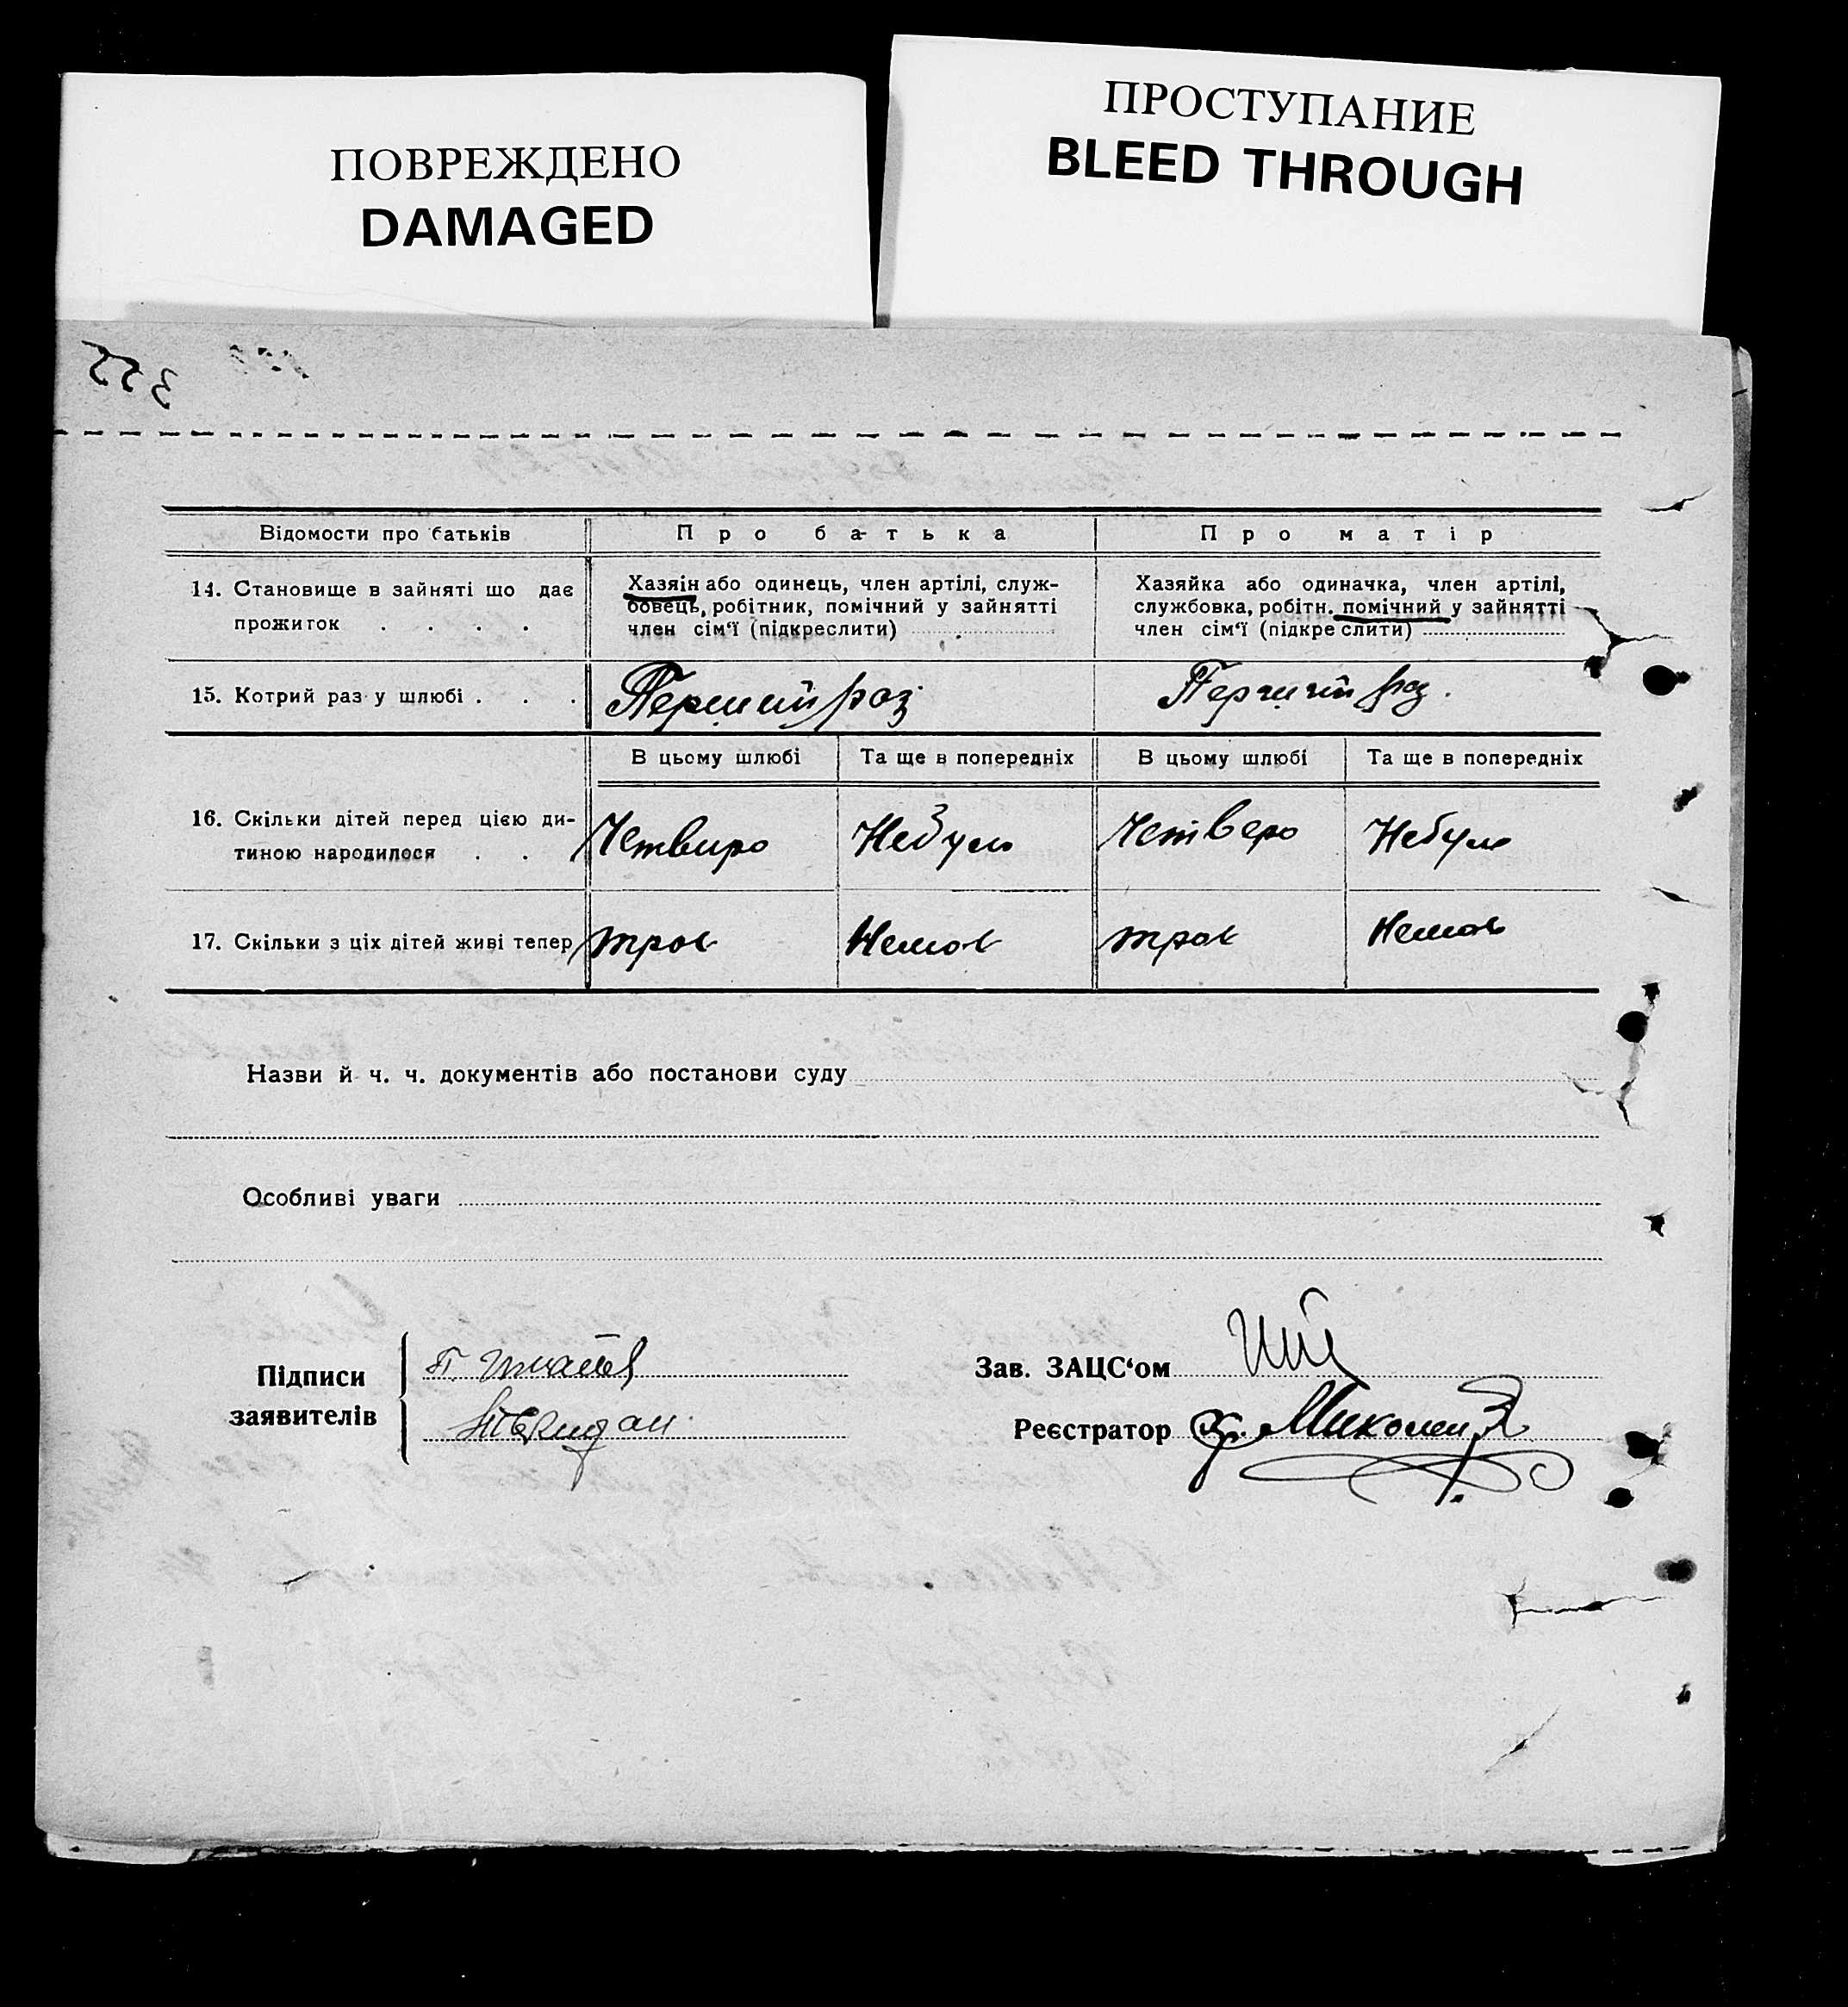 ПОВРЕЖДЕНО
DAMAGED
ПРОСТУПАНИЕ
BLEED THROUGH
355
Відомости про батьків
Про батька
Про матір
14. Становище в зайняті що дає
прожиток . . . .
Хазяін або одинець, член артілі, служ-
бовець, робітник, помічний у зайнятті
член сім‘ї (підкреслити)
Хазяйка або одиначка, член артілі,
службовка, робітн. помічний у зайнятті
член сім‘ї (підкреслити)
15. Котрий раз у шлюбі . . .
Перший раз
Перший раз.
В цьому шлюбі
Та ще в попередніх
В цьому шлюбі
Та ще в попередніх
16. Скільки дітей перед цією ди-
тиною народилося . . .
Четвиро
Небуло
Четверо
Небуло
17. Скільки з ціх дітей живі тепер
троє
Немає
троє
Немає
Назви й ч. ч. документів або постанови суду
Особливі уваги
Підписи
заявителів
Зав. ЗАЦС‘ом
Реєстратор